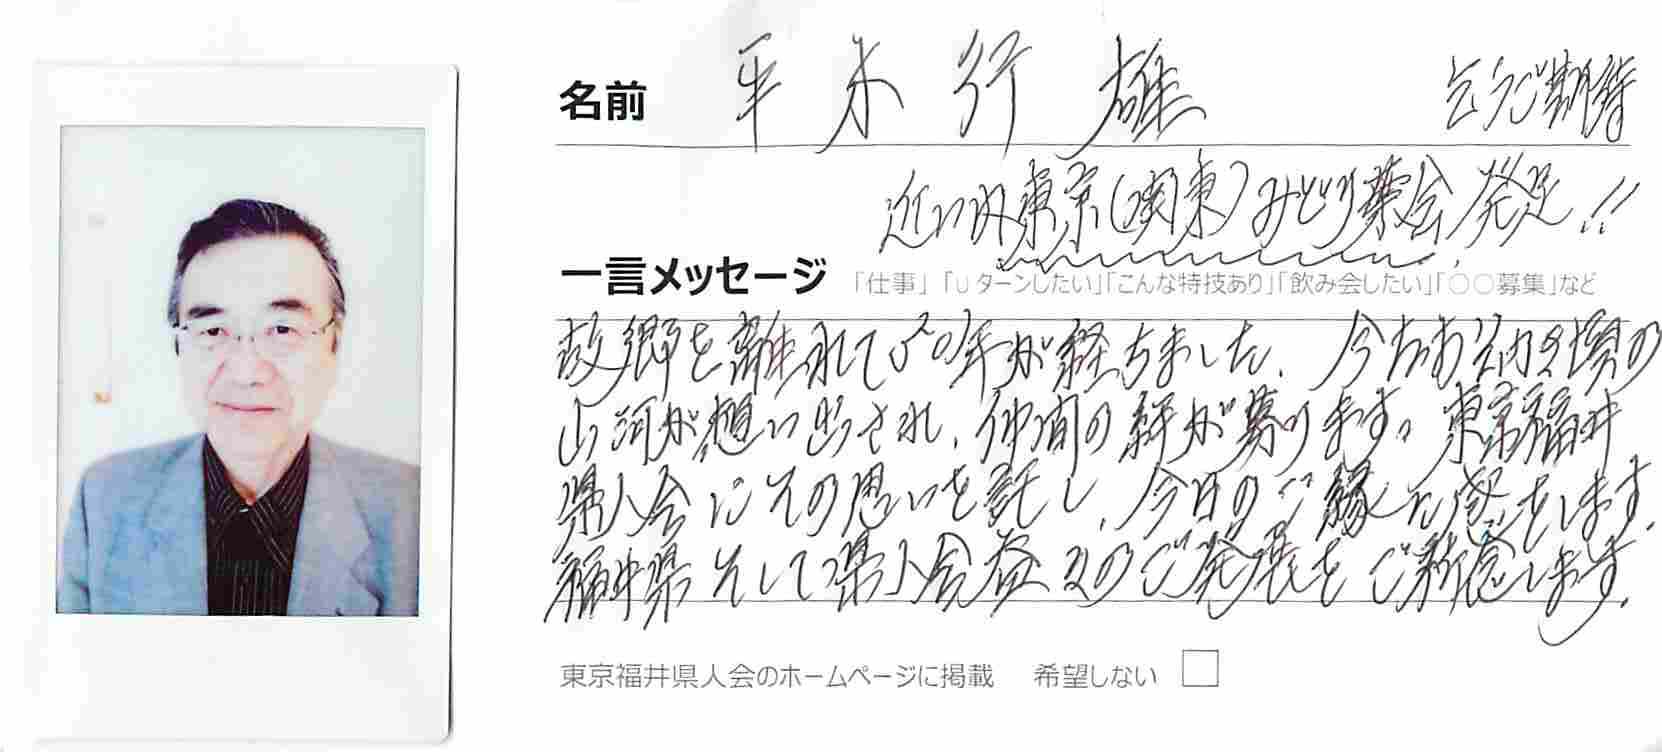 名前 平木行雄
乞うご期待
近い内東京(関東)みどり葉会発足!!
一言メッセージ 「仕事」「Uターンしたい」「こんな特技あり」「飲み会したい」「○○募集」など
故郷を離れて50年が経ちました。今なお幼き頃の
山河が想い出され、仲間の絆が募ります。東京福井
県人会にその思いを託し、今日のご縁に感謝をします。
福井県そして県人会益々のご発展をご祈念します。
東京福井県人会のホームページに掲載 希望しない